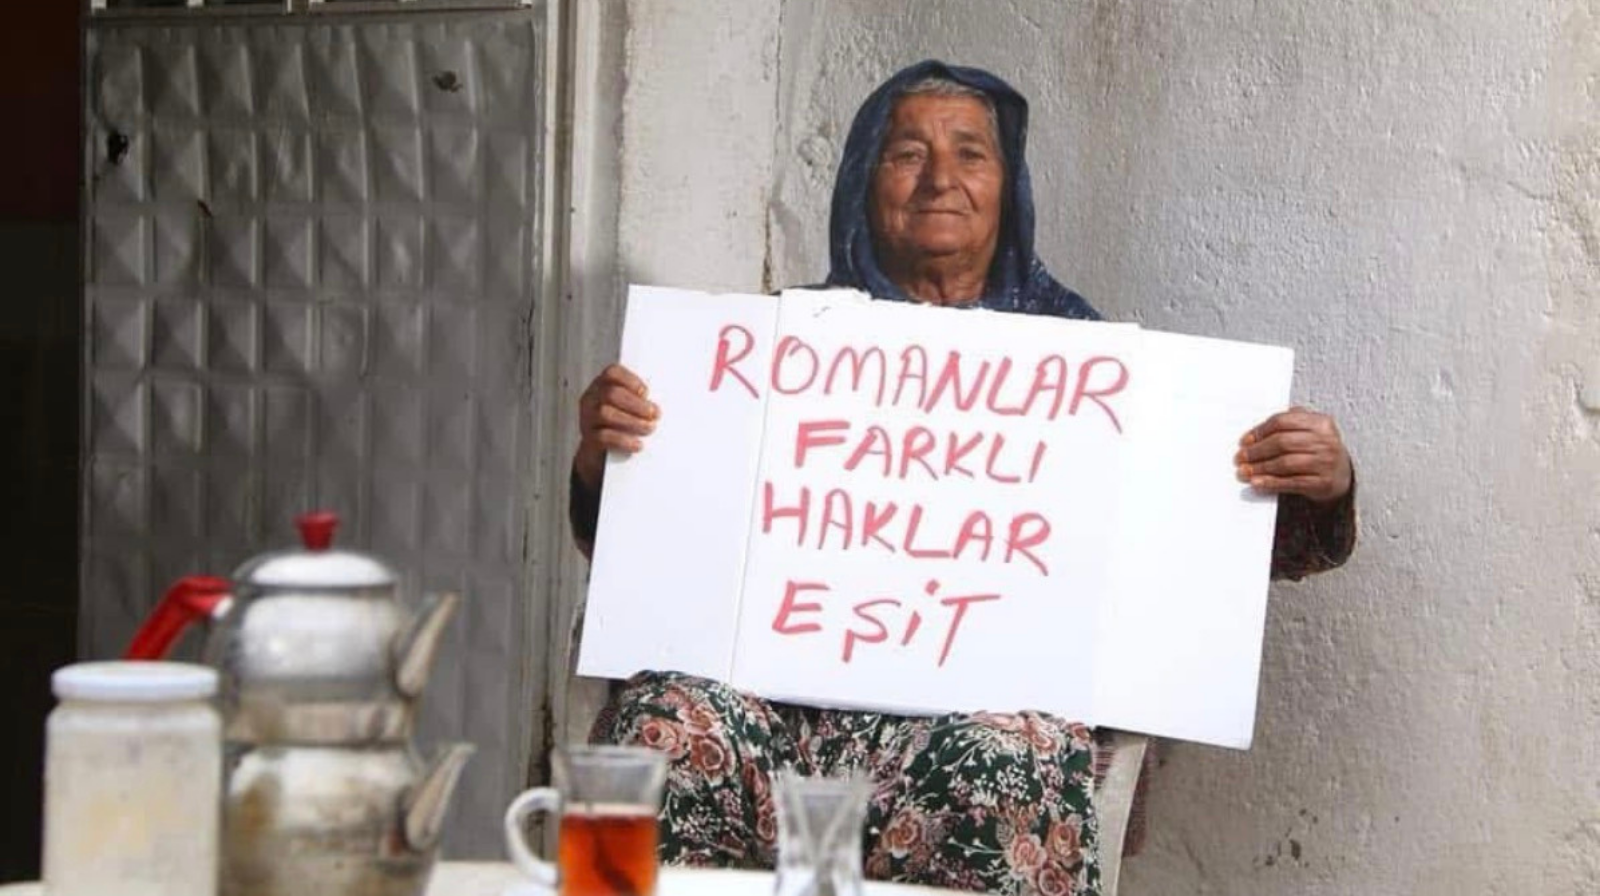 ROMANLAR
FARKLI
HAKLAR
EŞİT